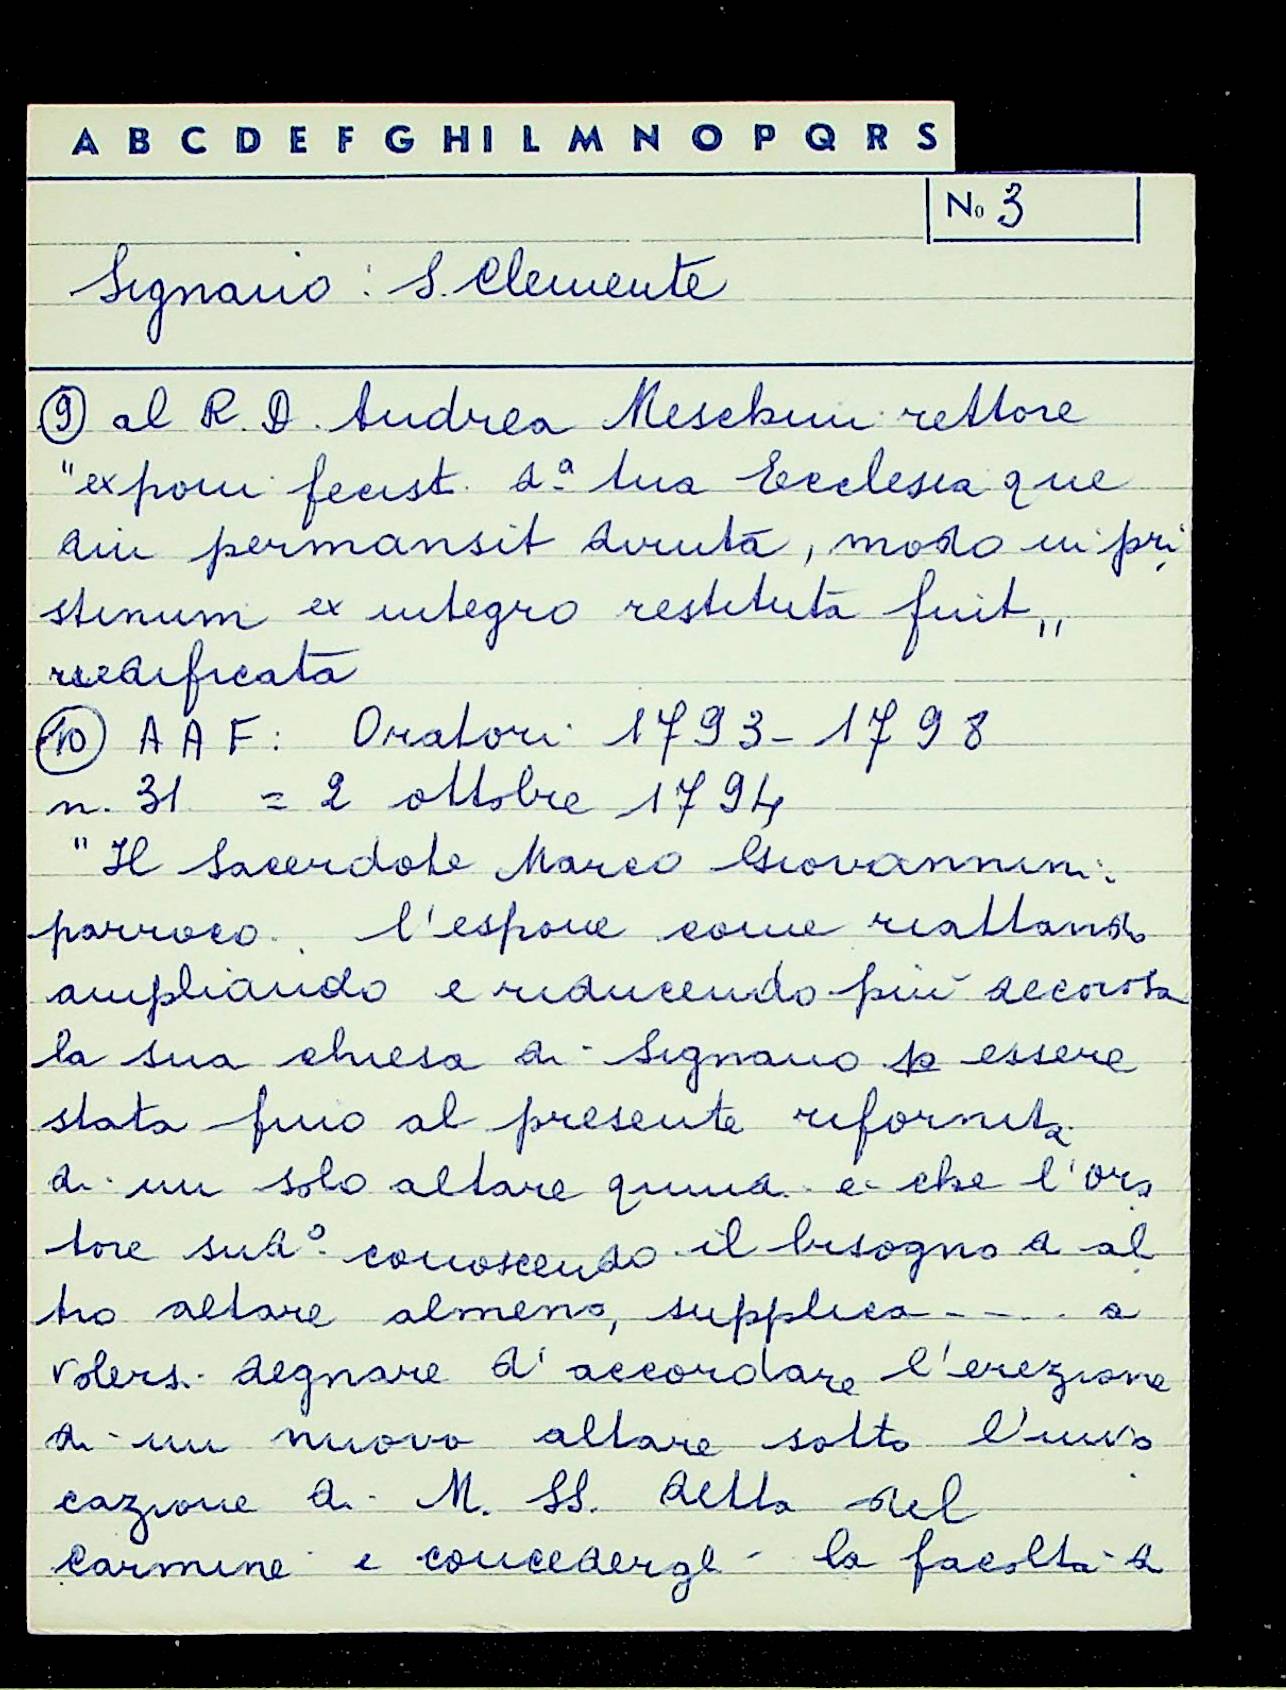 A B C D E F G H I L M N O P Q R S
No 3
Signano : S. Clemente
⑨ al R. D. Andrea Meschini rettore
"exponi fecist. dª tua Ecclesia que
diu permansit diruta, modo in pri
stinum ex integro restituta fuit"
riedificata
⑩ A A F: Oratori 1793-1798
n. 31 = 2 ottobre 1794
"Il Sacerdote Marco Giovannini:
parroco.. l'espone come riattando
ampliando e riducendo più decorosa
la sua chiesa di Signano essere
stata fino al presente rifornita
di un solo altare quindi e che l'ora
tore sudº conoscendo il bisogno d al
tro altare almeno, supplica - - . . a
volersi degnare d'accordare l'erezione
di un nuovo altare sotto l'invo
cazione di M. SS. detta del
Carmine e concedergli la facoltà d